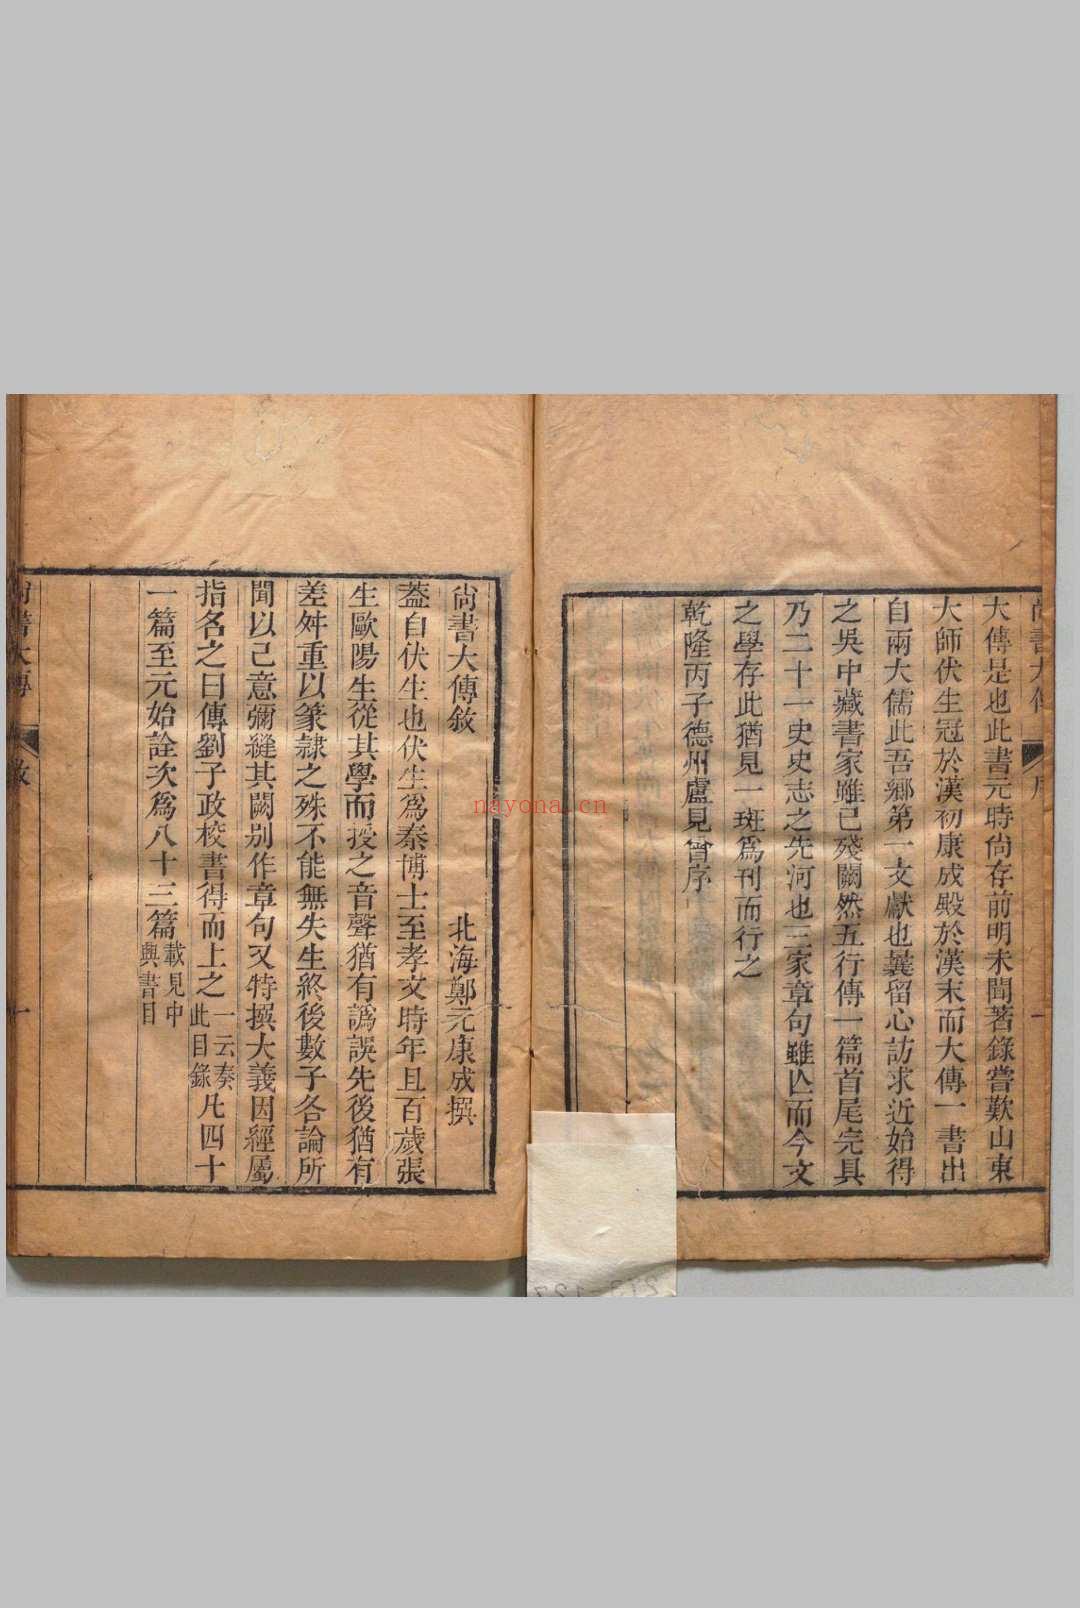 尚書大傳
序
大傳是也此書元時尚存前明未聞著錄嘗歎山東
大師伏生冠於漢初康成殿於漢末而大傳一書出
自兩大儒此吾鄉第一文獻也曩留心訪求近始得
之吳中藏書家雖已殘闕然五行傳一篇首尾完具
乃二十一史史志之先河也三家章句雖亾而今文
之學存此猶見一斑爲刊而行之
乾隆丙子德州盧見曾序
尚書大傳敘
北海鄭元康成撰
葢自伏生也伏生爲秦博士至孝文時年且百歲張
生歐陽生從其學而授之音聲猶有譌誤先後猶有
差舛重以篆隷之殊不能無失生終後數子各論所
聞以己意彌縫其闕别作章句又特撰大義因經屬
指名之曰傳劉子政校書得而上之一云奏此目錄凡四十
一篇至元始詮次爲八十三篇載見中興書目
尚書大傳
敘
一
nayona.cn